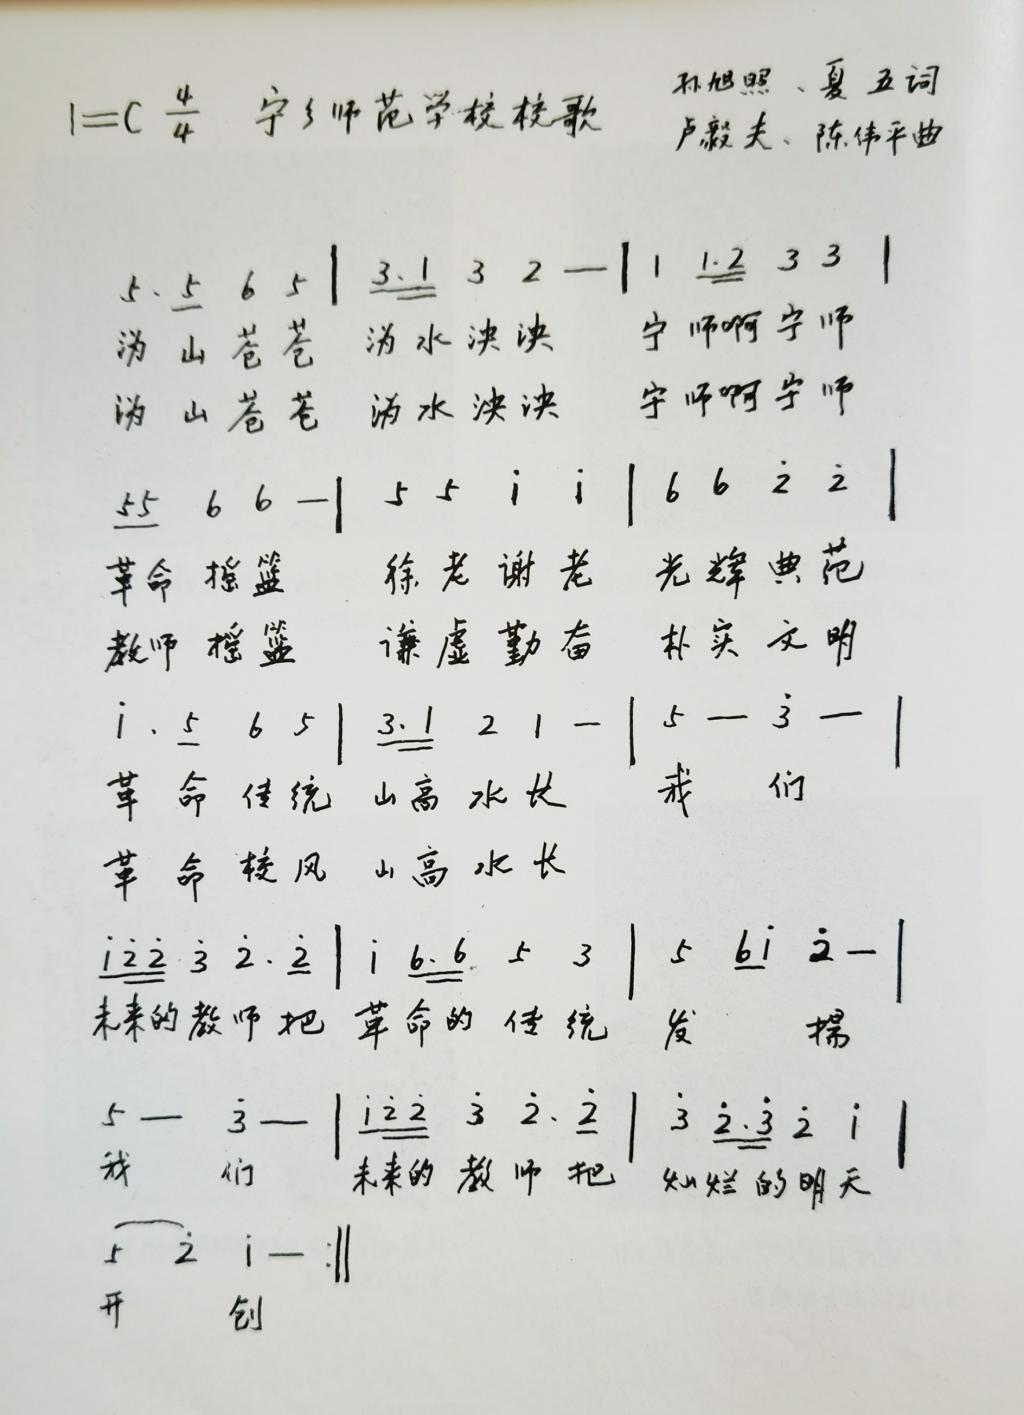 1=C 4/4 宁乡师范学校校歌 孙旭照、夏五词
卢毅夫、陈伟平曲
5. 5 6 5 | 3.1 3 2 — | 1 1.2 3 3 |
沩山苍苍 沩水泱泱 宁师啊宁师
沩山苍苍 沩水泱泱 宁师啊宁师
55 6 6 — | 5 5 i i | 6 6 2̇ 2̇ |
革命摇篮 徐老谢老 光辉典范
教师摇篮 谦虚勤奋 朴实文明
i . 5 6 5 | 3.1 2 1 — | 5 — 3̇ — |
革命传统 山高水长 我们
革命校风 山高水长
i2̇2̇ 3̇ 2̇. 2̇ | i 6.6 5 3 | 5 6i 2̇ — |
未来的教师把 革命的传统 发扬
5 — 3̇ — | i2̇2̇ 3̇ 2̇. 2̇ | 3̇ 2̇.3̇ 2̇ i |
我们 未来的教师把 灿烂的明天
5 2̇ i — :||
开创